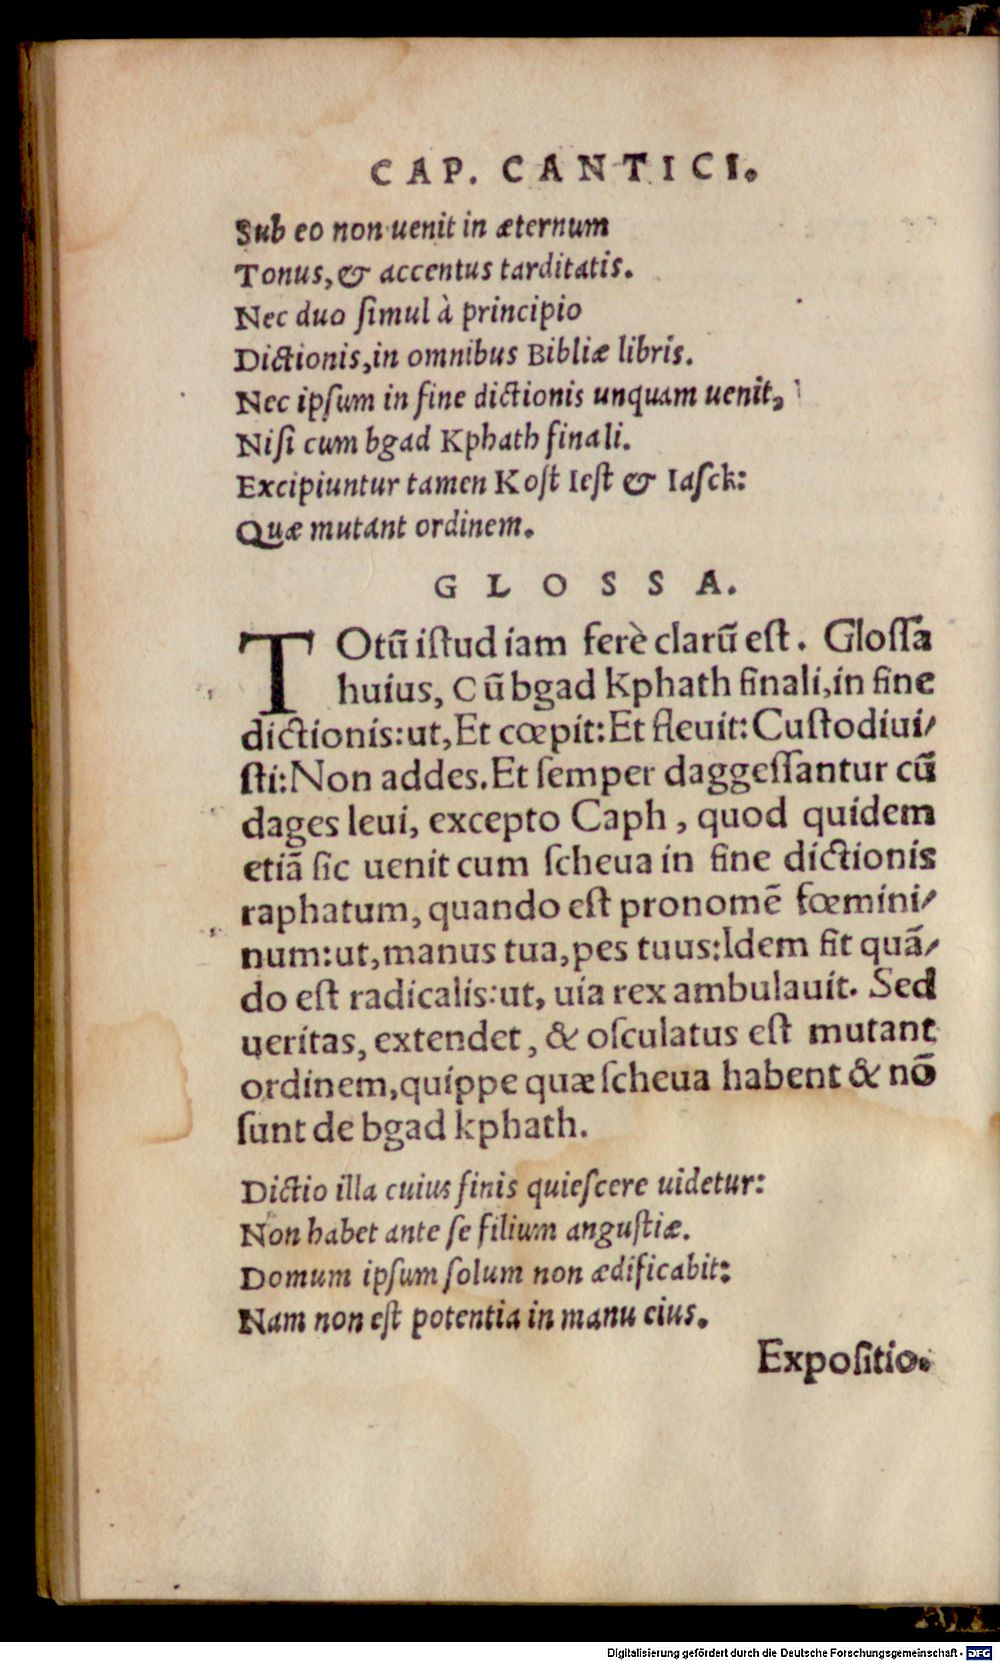 CAP. CANTICI.
Sub eo non uenit in æternum
Tonus, & accentus tarditatis.
Nec duo ſimul à principio
Dictionis, in omnibus Bibliæ libris.
Nec ipſum in fine dictionis unquam uenit,
Niſi cum bgad Kphath finali.
Excipiuntur tamen Koſt Ieſt & Iaſck:
Quæ mutant ordinem.
GLOSSA.
TOtũ iſtud iam ferè clarũ eſt. Gloſſa
huius, Cũ bgad Kphath finali, in fine
dictionis: ut, Et cœpit: Et fleuit: Cuſtodiui/
ſti: Non addes. Et ſemper daggeſſantur cũ
dages leui, excepto Caph, quod quidem
etiã ſic uenit cum ſcheua in fine dictionis
raphatum, quando eſt pronomẽ fœmini/
num: ut, manus tua, pes tuus: Idem fit quã/
do eſt radicalis: ut, uia rex ambulauit. Sed
ueritas, extendet, & oſculatus eſt mutant
ordinem, quippe quæ ſcheua habent & nõ
ſunt de bgad kphath.
Dictio illa cuius finis quieſcere uidetur:
Non habet ante ſe filium anguſtiæ.
Domum ipſum ſolum non ædificabit:
Nam non eſt potentia in manu eius.
Expoſitio.
Digitalisierung gefördert durch die Deutsche Forschungsgemeinschaft - DFG